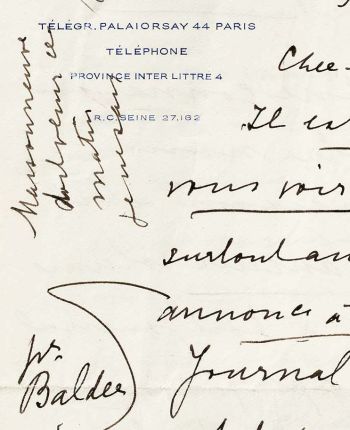 TÉLÉGR. PALAIORSAY 44 PARIS
TÉLÉPHONE
PROVINCE INTER LITTRÉ 4
R.C. SEINE 27.162
Maisonneuve
doit venir ce
matin
Chee-
Il es
vous voir
surtout au
annonce à
Journal
pr.
Balder